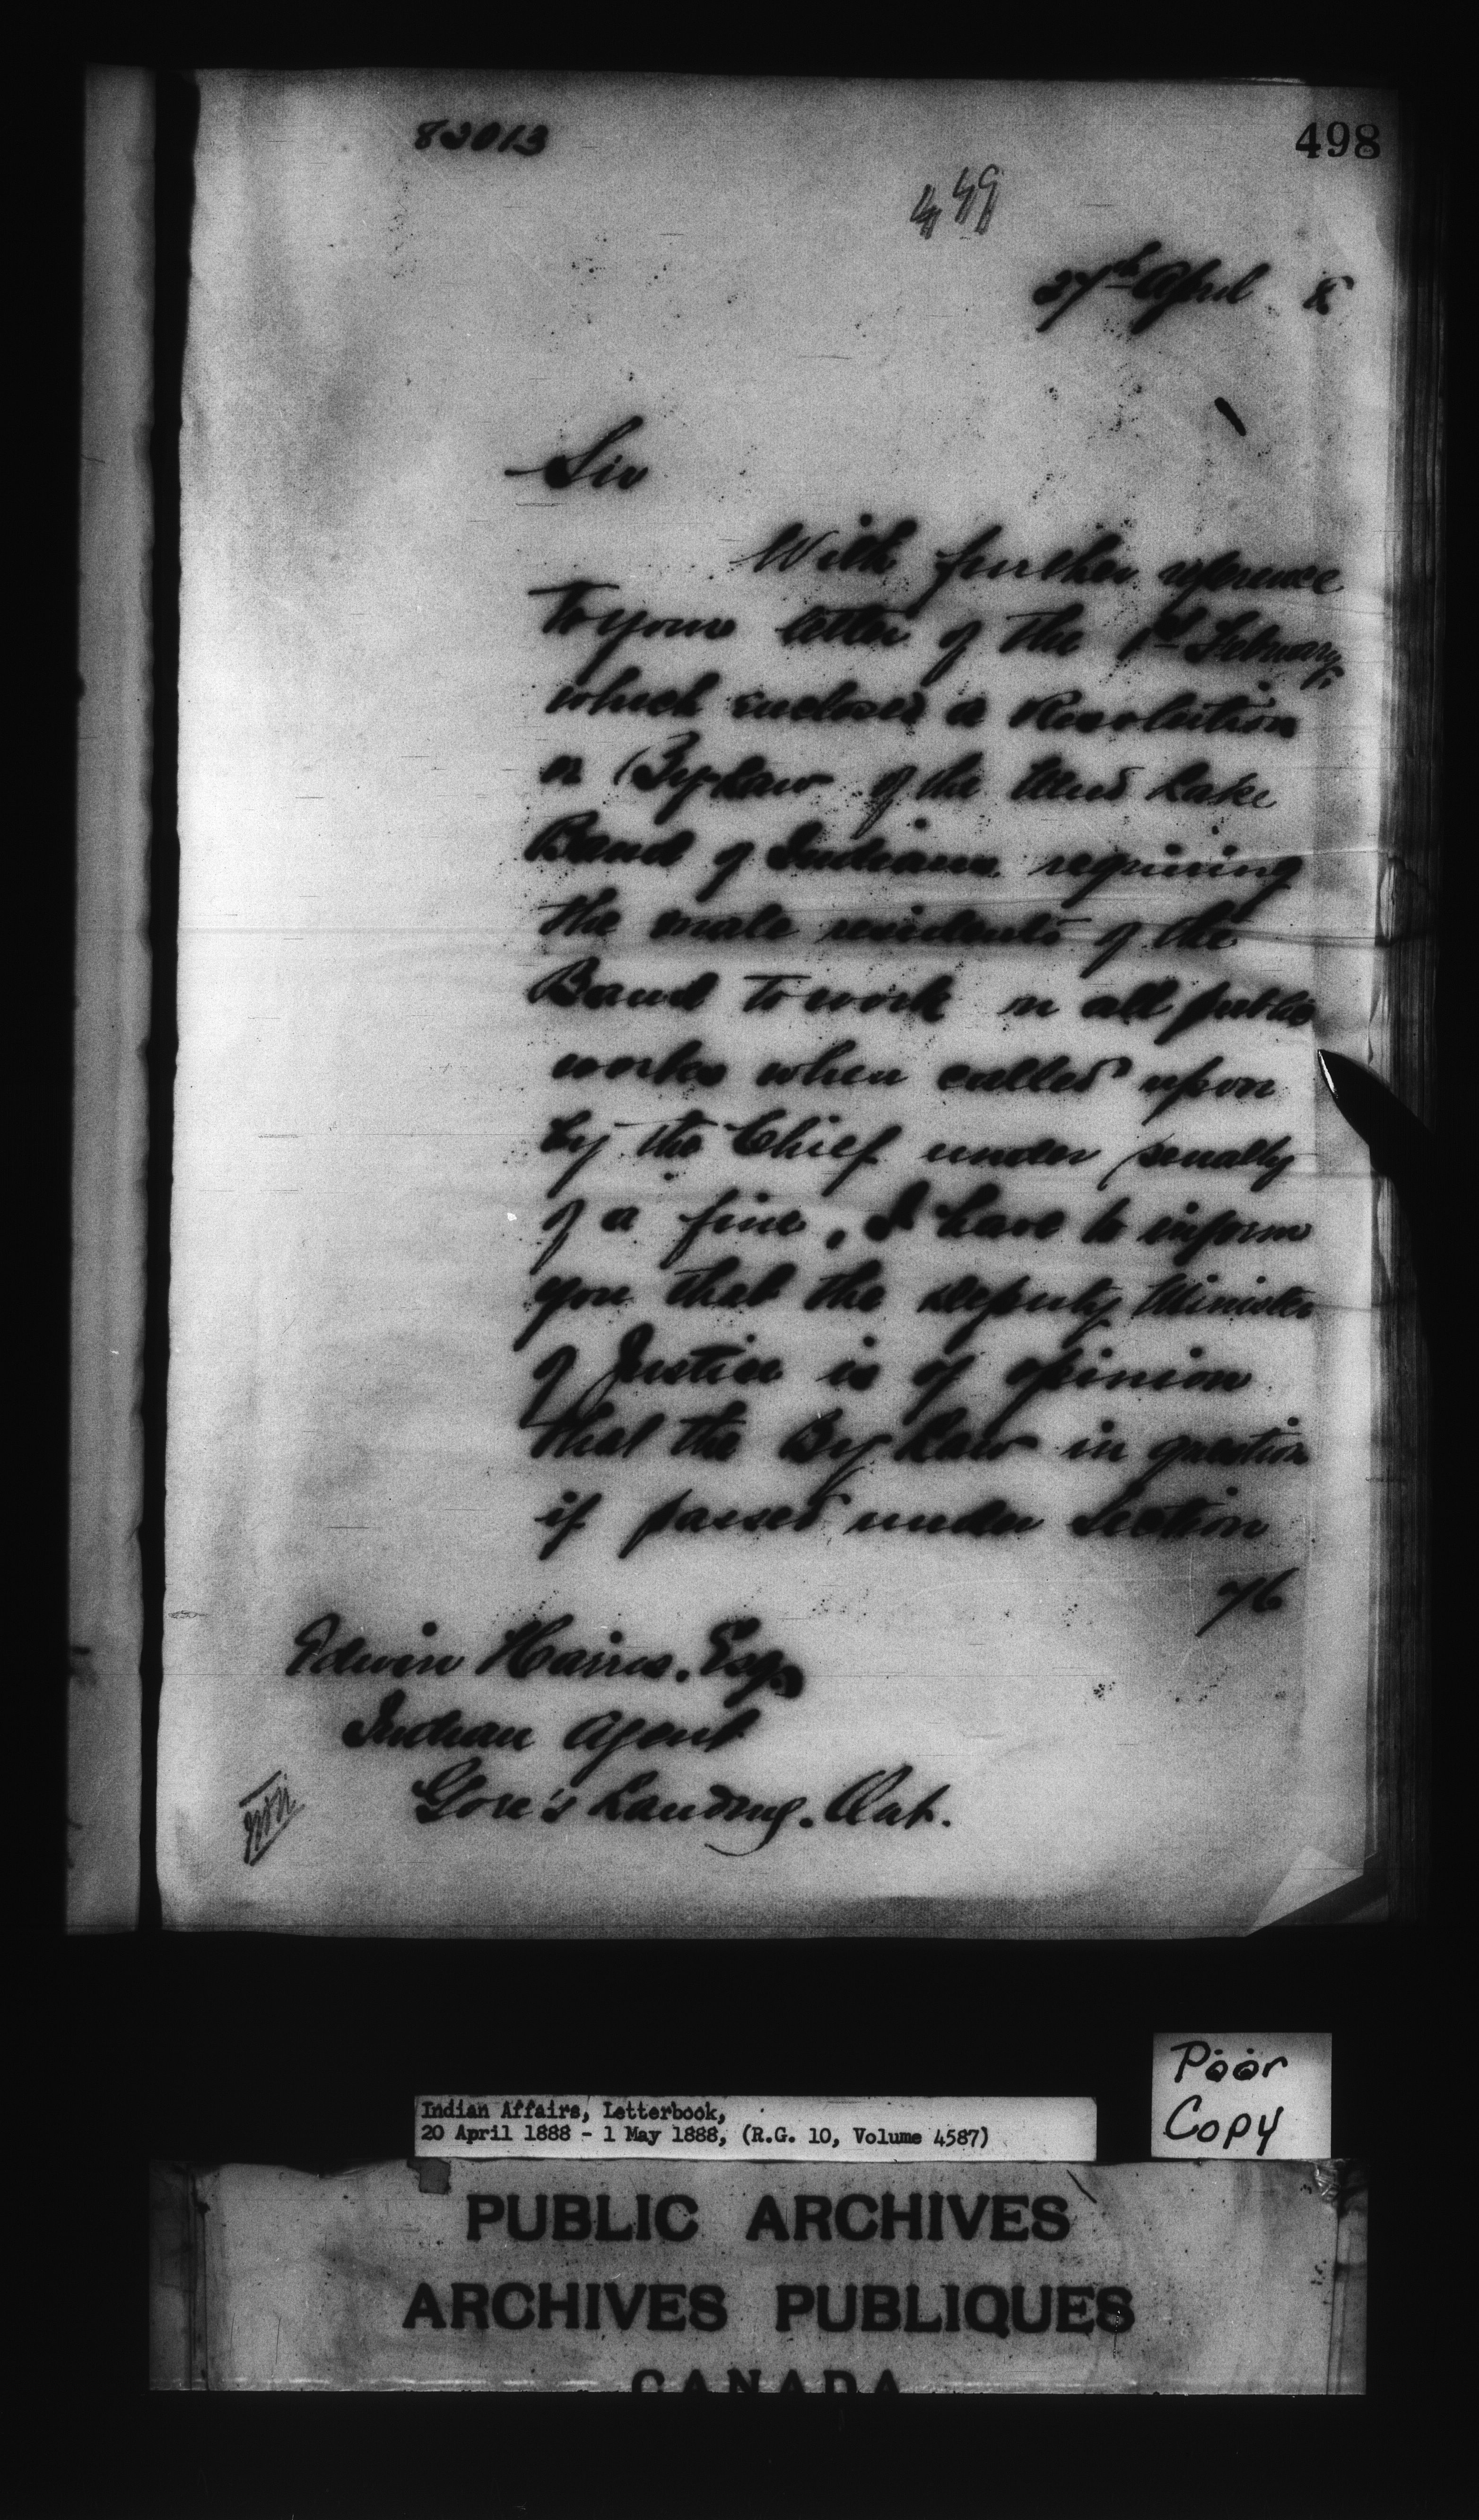 83013
498
449
27th April 8
Sir
With further reference
to your letter of the 1st February,
which enclosed a Resolution
or By-Law of the Mud Lake
Band of Indians requiring
the male residents of the
Band to work on all public
works when called upon
by the Chief under penalty
of a fine, I have to inform
you that the Deputy Minister
of Justice is of opinion
that the By Law in question
if passed under Section
76
Edwin Harris. Esq.
Indian Agent
Gore's Landing. Ont.
Poor
Copy
Indian Affairs, Letterbook,
20 April 1888 - 1 May 1888, (R.G. 10, Volume 4587)
PUBLIC ARCHIVES
ARCHIVES PUBLIQUES
CANADA